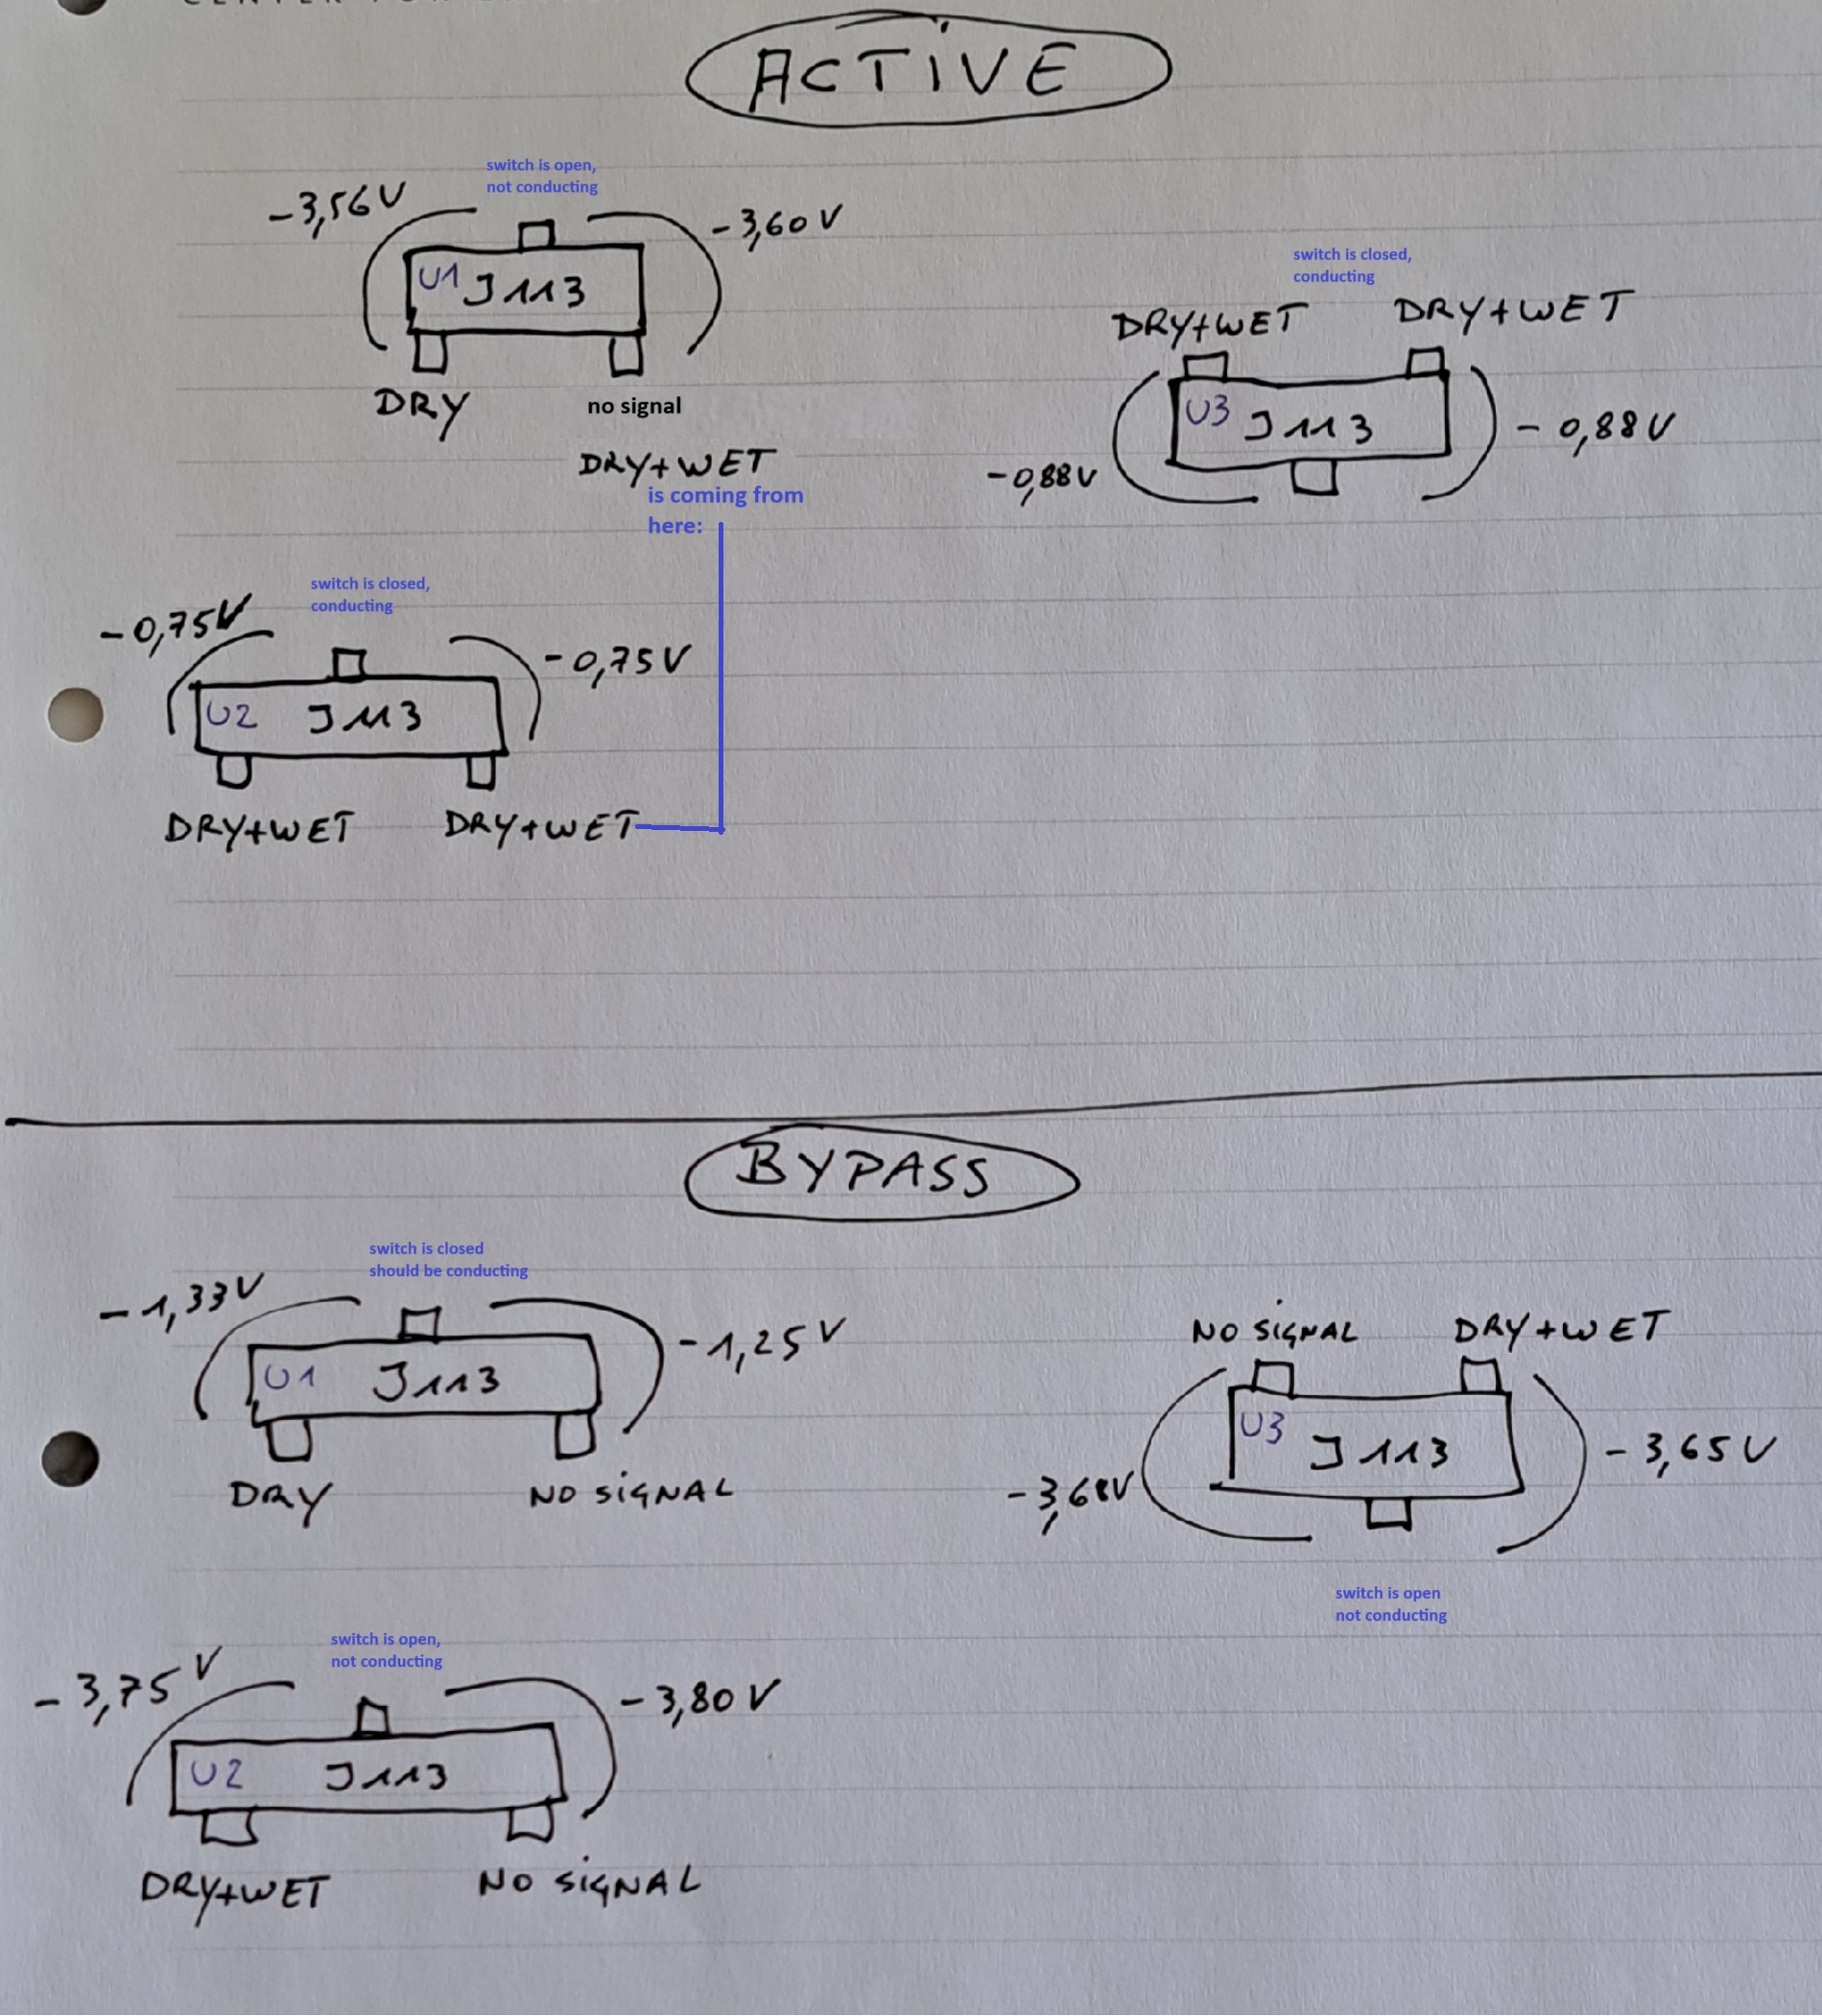 ACTIVE
switch is open,
not conducting
-3,56V
-3,60V
U1 J113
DRY
no signal
DRY+WET
is coming from
here:
switch is closed,
conducting
DRY+WET DRY+WET
U3 J113
-0,88V
-0,88V
switch is closed,
conducting
-0,75V
-0,75V
U2 J113
DRY+WET DRY+WET
BYPASS
switch is closed
should be conducting
-1,33V
-1,25V
U1 J113
DRY NO SIGNAL
NO SIGNAL DRY+WET
U3 J113
-3,68V
-3,65V
switch is open
not conducting
switch is open,
not conducting
-3,75V
-3,80V
U2 J113
DRY+WET NO SIGNAL